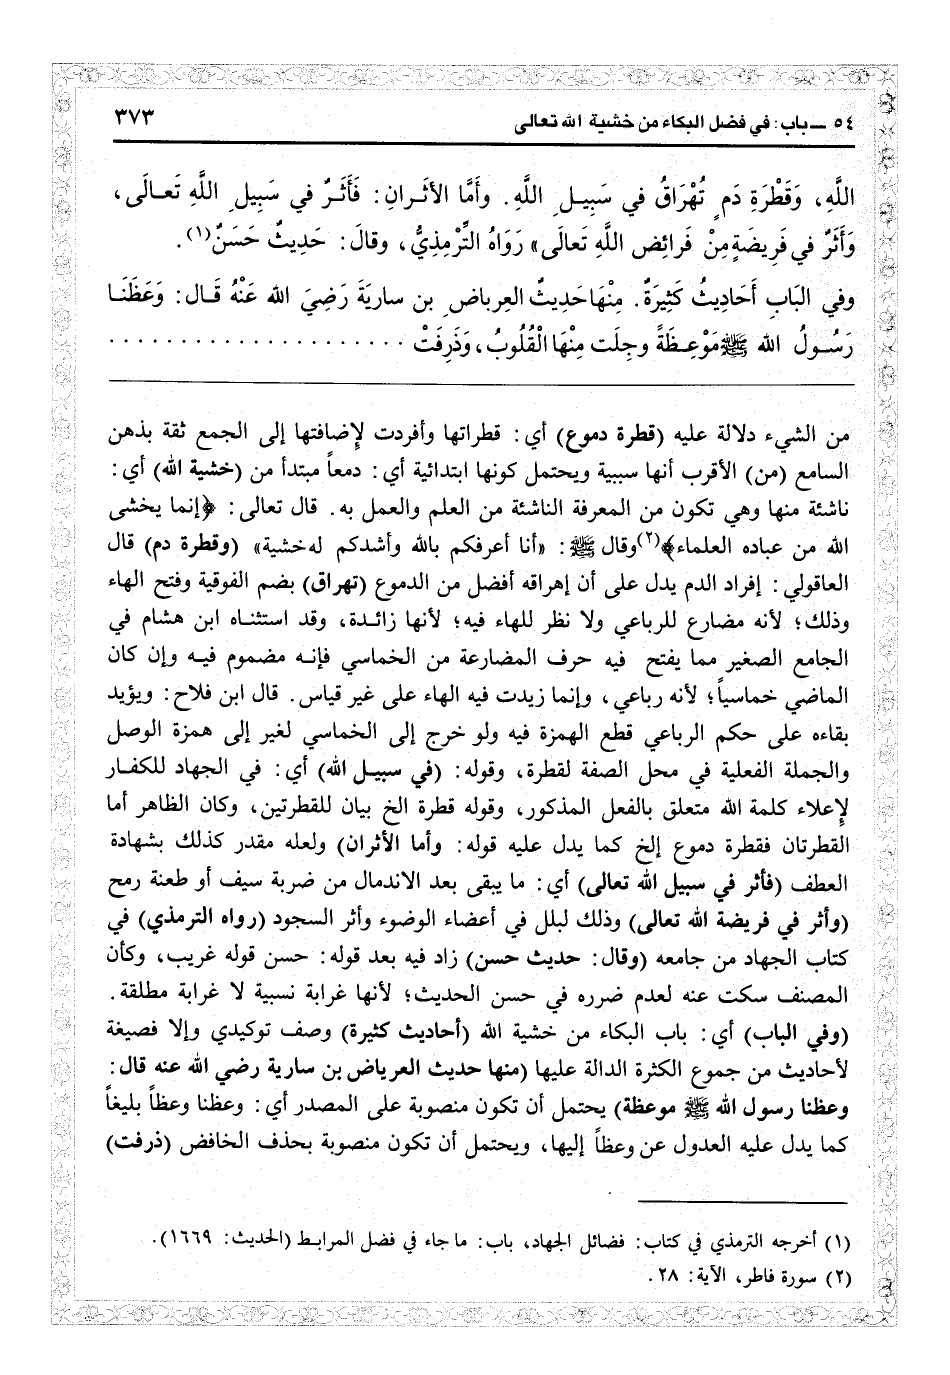 ٥٤ ــ باب: في فضل البكاء من خشية الله تعالى ٣٧٣
اللَّهِ، وَقَطْرَةِ دَمٍ تُهْرَاقُ في سَبِيلِ اللَّهِ. وأَمَّا الأثَرانِ: فَأَثَرٌ في سَبِيلِ اللَّهِ تَعالَى،
وَأَثَرٌ في فَرِيضَةٍ مِنْ فَرائِضِ اللَّهِ تَعالَى» رَوَاهُ التِّرْمِذِيُّ، وقالَ: حَدِيثٌ حَسَنٌ(١).
وفي البَابِ أَحَادِيثُ كَثِيرَةٌ. مِنْهَا حَدِيثُ العِرباضِ بن سارِيَةَ رَضِيَ الله عَنْهُ قَال: وَعَظَنَا
رَسُولُ الله ﷺ مَوْعِظَةً وجِلَت مِنْهَا الْقُلُوبُ، وَذَرِفَتْ . . . . . . . . . . . . . . . . . . . . .
من الشيء دلالة عليه (قطرة دموع) أي: قطراتها وأفردت لإضافتها إلى الجمع ثقة بذهن
السامع (من) الأقرب أنها سببية ويحتمل كونها ابتدائية أي: دمعاً مبتدأ من (خشية الله) أي:
ناشئة منها وهي تكون من المعرفة الناشئة من العلم والعمل به. قال تعالى: ﴿إنما يخشى
الله من عباده العلماء﴾(٢) وقال ﷺ: «أنا أعرفكم بالله وأشدكم له خشية» (وقطرة دم) قال
العاقولي: إفراد الدم يدل على أن إهراقه أفضل من الدموع (تهراق) بضم الفوقية وفتح الهاء
وذلك؛ لأنه مضارع للرباعي ولا نظر للهاء فيه؛ لأنها زائدة، وقد استثناه ابن هشام في
الجامع الصغير مما يفتح فيه حرف المضارعة من الخماسي فإنه مضموم فيه وإن كان
الماضي خماسياً؛ لأنه رباعي، وإنما زيدت فيه الهاء على غير قياس. قال ابن فلاح: ويؤيد
بقاءه على حكم الرباعي قطع الهمزة فيه ولو خرج إلى الخماسي لغير إلى همزة الوصل
والجملة الفعلية في محل الصفة لقطرة، وقوله: (في سبيل الله) أي: في الجهاد للكفار
لإعلاء كلمة الله متعلق بالفعل المذكور، وقوله قطرة الخ بيان للقطرتين، وكان الظاهر أما
القطرتان فقطرة دموع إلخ كما يدل عليه قوله: (وأما الأثران) ولعله مقدر كذلك بشهادة
العطف (فأثر في سبيل الله تعالى) أي: ما يبقى بعد الاندمال من ضربة سيف أو طعنة رمح
(وأثر في فريضة الله تعالى) وذلك لبلل في أعضاء الوضوء وأثر السجود (رواه الترمذي) في
كتاب الجهاد من جامعه (وقال: حديث حسن) زاد فيه بعد قوله: حسن قوله غريب، وكأن
المصنف سكت عنه لعدم ضرره في حسن الحديث؛ لأنها غرابة نسبية لا غرابة مطلقة.
(وفي الباب) أي: باب البكاء من خشية الله (أحاديث كثيرة) وصف توكيدي وإلا فصيغة
لأحاديث من جموع الكثرة الدالة عليها (منها حديث العرياض بن سارية رضي الله عنه قال:
وعظنا رسول الله ﷺ موعظة) يحتمل أن تكون منصوبة على المصدر أي: وعظنا وعظاً بليغاً
كما يدل عليه العدول عن وعظاً إليها، ويحتمل أن تكون منصوبة بحذف الخافض (ذرفت)
(١) أخرجه الترمذي في كتاب: فضائل الجهاد، باب: ما جاء في فضل المرابط (الحديث: ١٦٦٩).
(٢) سورة فاطر، الآية: ٢٨.